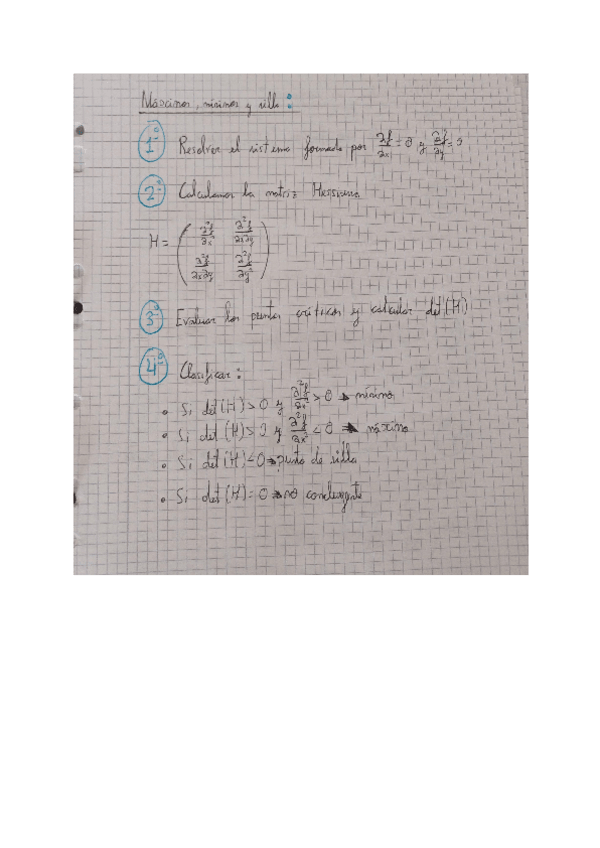 Máximos, mínimos y silla:
1º Resolver el sistema formado por ∂f/∂x = 0 y ∂f/∂y = 0
2º Calculamos la matriz Hessiana
H = ( ∂²f/∂x² ∂²f/∂x∂y
∂²f/∂x∂y ∂²f/∂y² )
3º Evaluar los puntos críticos y calcular det(H)
4º Clasificar:
• Si det(H) > 0 y ∂²f/∂x² > 0 → mínimo
• Si det(H) > 0 y ∂²f/∂x² < 0 → máximo
• Si det(H) < 0 → punto de silla
• Si det(H) = 0 → no concluyente